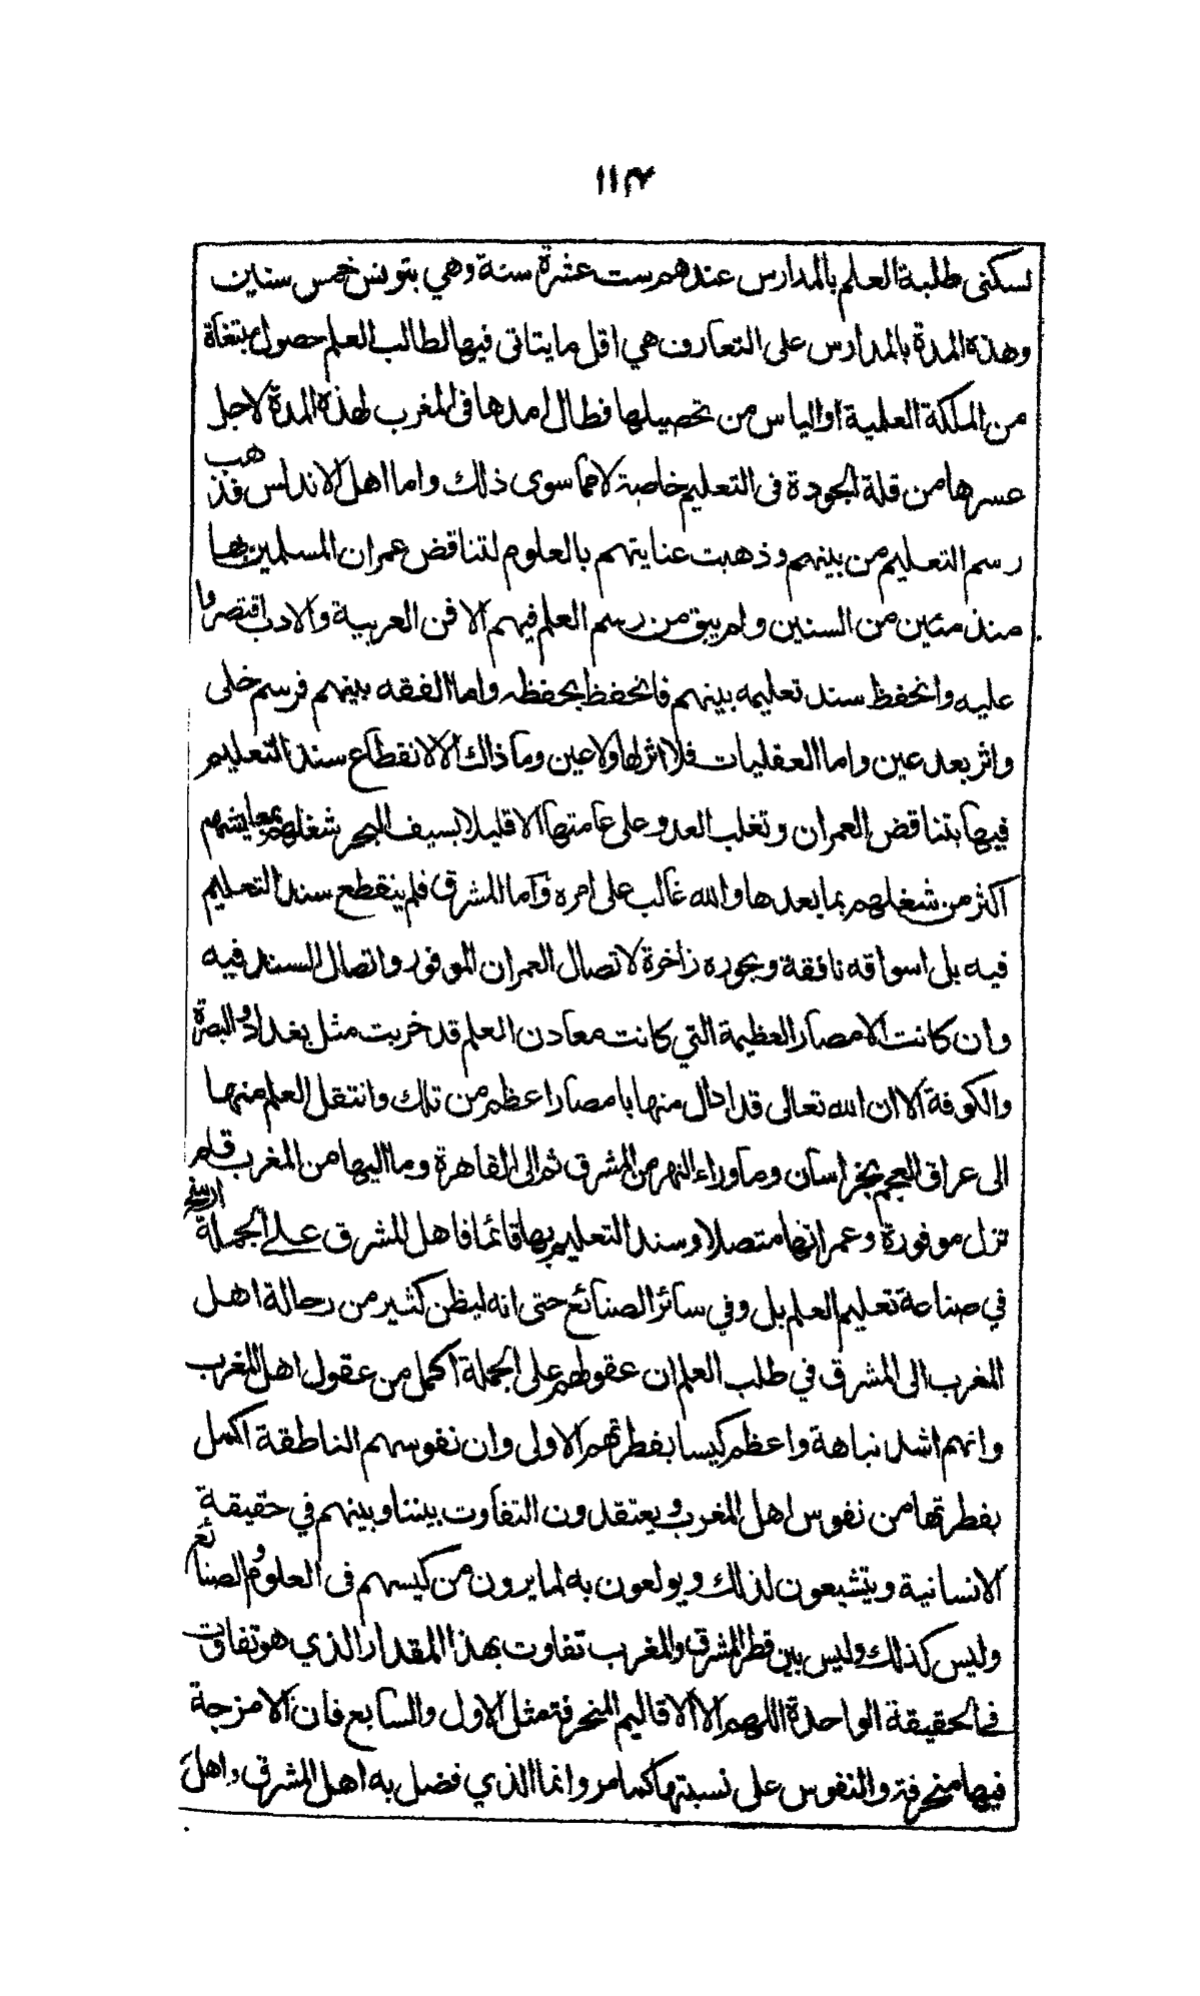 ١١٣
لسكنى طلبة العلم بالمدارس عندهم ست عشرة سنة وهي بتونس خمس سنين
وهذه المدة بالمدارس على التعارف هي اقل ما يتاتى فيها لطالب العلم حصول مبتغاة
من الملكة العلمية او الياس من تحصيلها فطال امدها فى المغرب لهذه المدة لاجل
عسرها من قلة الجودة فى التعليم خاصة لا مما سوى ذلك واما اهل الاندلس فذهب
رسم التعليم من بينهم وذهبت عنايتهم بالعلوم لتناقض عمران المسلمين بها
منذ مئين من السنين ولم يبق من رسم العلم فيهم الا فن العربية والادب اقتصروا
عليه وانحفظ سند تعليمه بينهم فانحفظ بحفظه واما الفقه بينهم فرسم خلى
واثر بعد عين واما العقليات فلا اثر لها ولا عين وما ذاك الا لانقطاع سند التعليم
فيها بتناقض العمران وتغلب العدو على عامتها الا قليلا بسيف البحر شغلهم بمعايشهم
اكثر من شغلهم بما بعدها والله غالب على امره واما المشرق فلم ينقطع سند التعليم
فيه بل اسواقه نافقة وبحوره زاخرة لاتصال العمران الموفور واتصال السند فيه
وان كانت الامصار العظيمة التي كانت معادن العلم قد خربت مثل بغداد والبصرة
والكوفة الا ان الله تعالى قد ادال منها بامصار اعظم من تلك وانتقل العلم منها
الى عراق العجم بخراسان وما وراء النهر من المشرق ثم الى القاهرة وما اليها من المغرب فلم
تزل موفورة وعمرانها متصلا وسند التعليم بها قائما فاهل المشرق على الجملة ارسخ
في صناعة تعليم العلم بل وفي سائر الصنائع حتى انه ليظن كثير من رحالة اهل
المغرب الى المشرق في طلب العلم ان عقولهم على الجملة اكمل من عقول اهل المغرب
وانهم اشد نباهة واعظم كيسا بفطرتهم الاولى وان نفوسهم الناطقة اكمل
بفطرتها من نفوس اهل المغرب ويعتقدون التفاوت بيننا وبينهم في حقيقة
الانسانية ويتشيعون لذلك ويولعون به لما يرون من كيسهم فى العلوم والصنائع
وليس كذلك وليس بين قطر المشرق والمغرب تفاوت بهذا المقدار الذي هو تفاوت
في الحقيقة الواحدة اللهم الا الاقاليم المنحرفة مثل الاول والسابع فان الامزجة
فيها منحرفة والنفوس على نسبتها كما مر وانما الذي فضل به اهل المشرق واهل